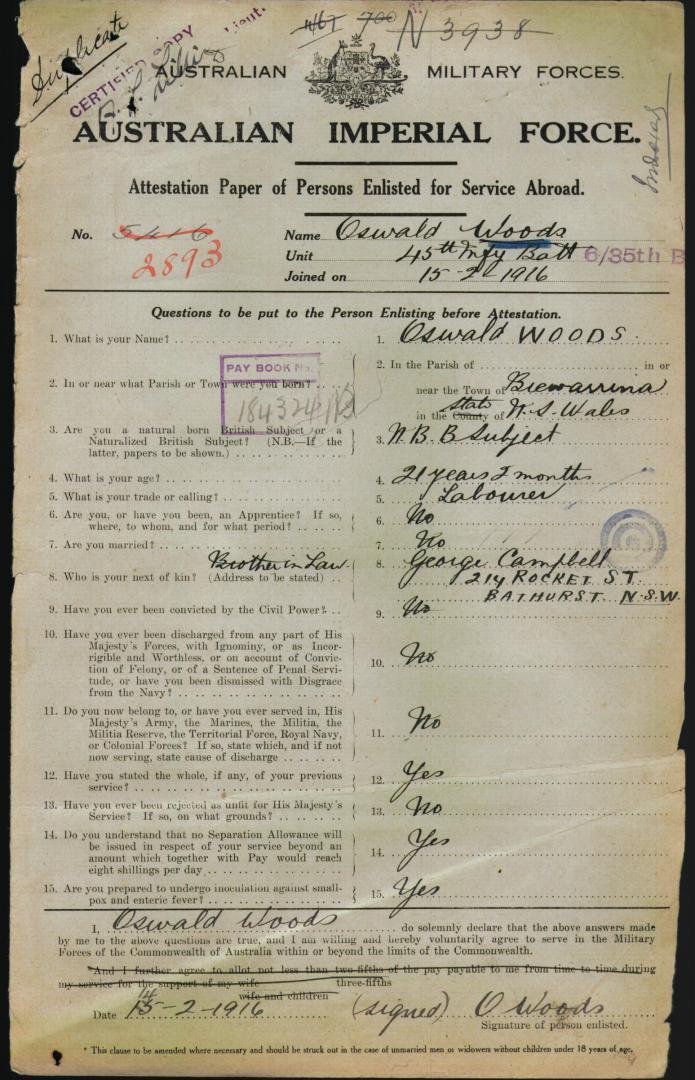 Duplicate
CERTIFIED COPY
Lieut.
4/67 700 N3938
AUSTRALIAN MILITARY FORCES.
AUSTRALIAN IMPERIAL FORCE.
Attestation Paper of Persons Enlisted for Service Abroad.
No. 5416 Name Oswald Woods
2893 Unit 45th Infy Batt 6/35th B
Joined on 15-2-1916
Questions to be put to the Person Enlisting before Attestation.
1. What is your Name? 1. Oswald WOODS.
PAY BOOK No.
2. In or near what Parish or Town were you born? 2. In the Parish of in or
near the Town of Brewarrina
in the County of State N.S. Wales
3. Are you a natural born British Subject or a
Naturalized British Subject? (N.B.—If the
latter, papers to be shown.) 3. N. B. B Subject
4. What is your age? 4. 21 years 2 months
5. What is your trade or calling? 5. Labourer
6. Are you, or have you been, an Apprentice? If so,
where, to whom, and for what period? 6. No
7. Are you married? 7. No
Brother in Law
8. Who is your next of kin? (Address to be stated) 8. George Campbell
214 ROCKET ST.
BATHURST N.S.W.
9. Have you ever been convicted by the Civil Power? 9. No
10. Have you ever been discharged from any part of His
Majesty's Forces, with Ignominy, or as Incor-
rigible and Worthless, or on account of Convic-
tion of Felony, or of a Sentence of Penal Servi-
tude, or have you been dismissed with Disgrace
from the Navy? 10. No
11. Do you now belong to, or have you ever served in, His
Majesty's Army, the Marines, the Militia, the
Militia Reserve, the Territorial Force, Royal Navy,
or Colonial Forces? If so, state which, and if not
now serving, state cause of discharge 11. No
12. Have you stated the whole, if any, of your previous
service? 12. Yes
13. Have you ever been rejected as unfit for His Majesty's
Service? If so, on what grounds? 13. No
14. Do you understand that no Separation Allowance will
be issued in respect of your service beyond an
amount which together with Pay would reach
eight shillings per day 14. Yes
15. Are you prepared to undergo inoculation against small-
pox and enteric fever? 15. Yes
I, Oswald Woods do solemnly declare that the above answers made
by me to the above questions are true, and I am willing and hereby voluntarily agree to serve in the Military
Forces of the Commonwealth of Australia within or beyond the limits of the Commonwealth.
*And I further agree to allot not less than two-fifths of the pay payable to me from time to time during
my service for the support of my wife three-fifths
wife and children
Date 15-2-1916 (signed) O Woods
Signature of person enlisted.
* This clause to be amended where necessary and should be struck out in the case of unmarried men or widowers without children under 18 years of age.